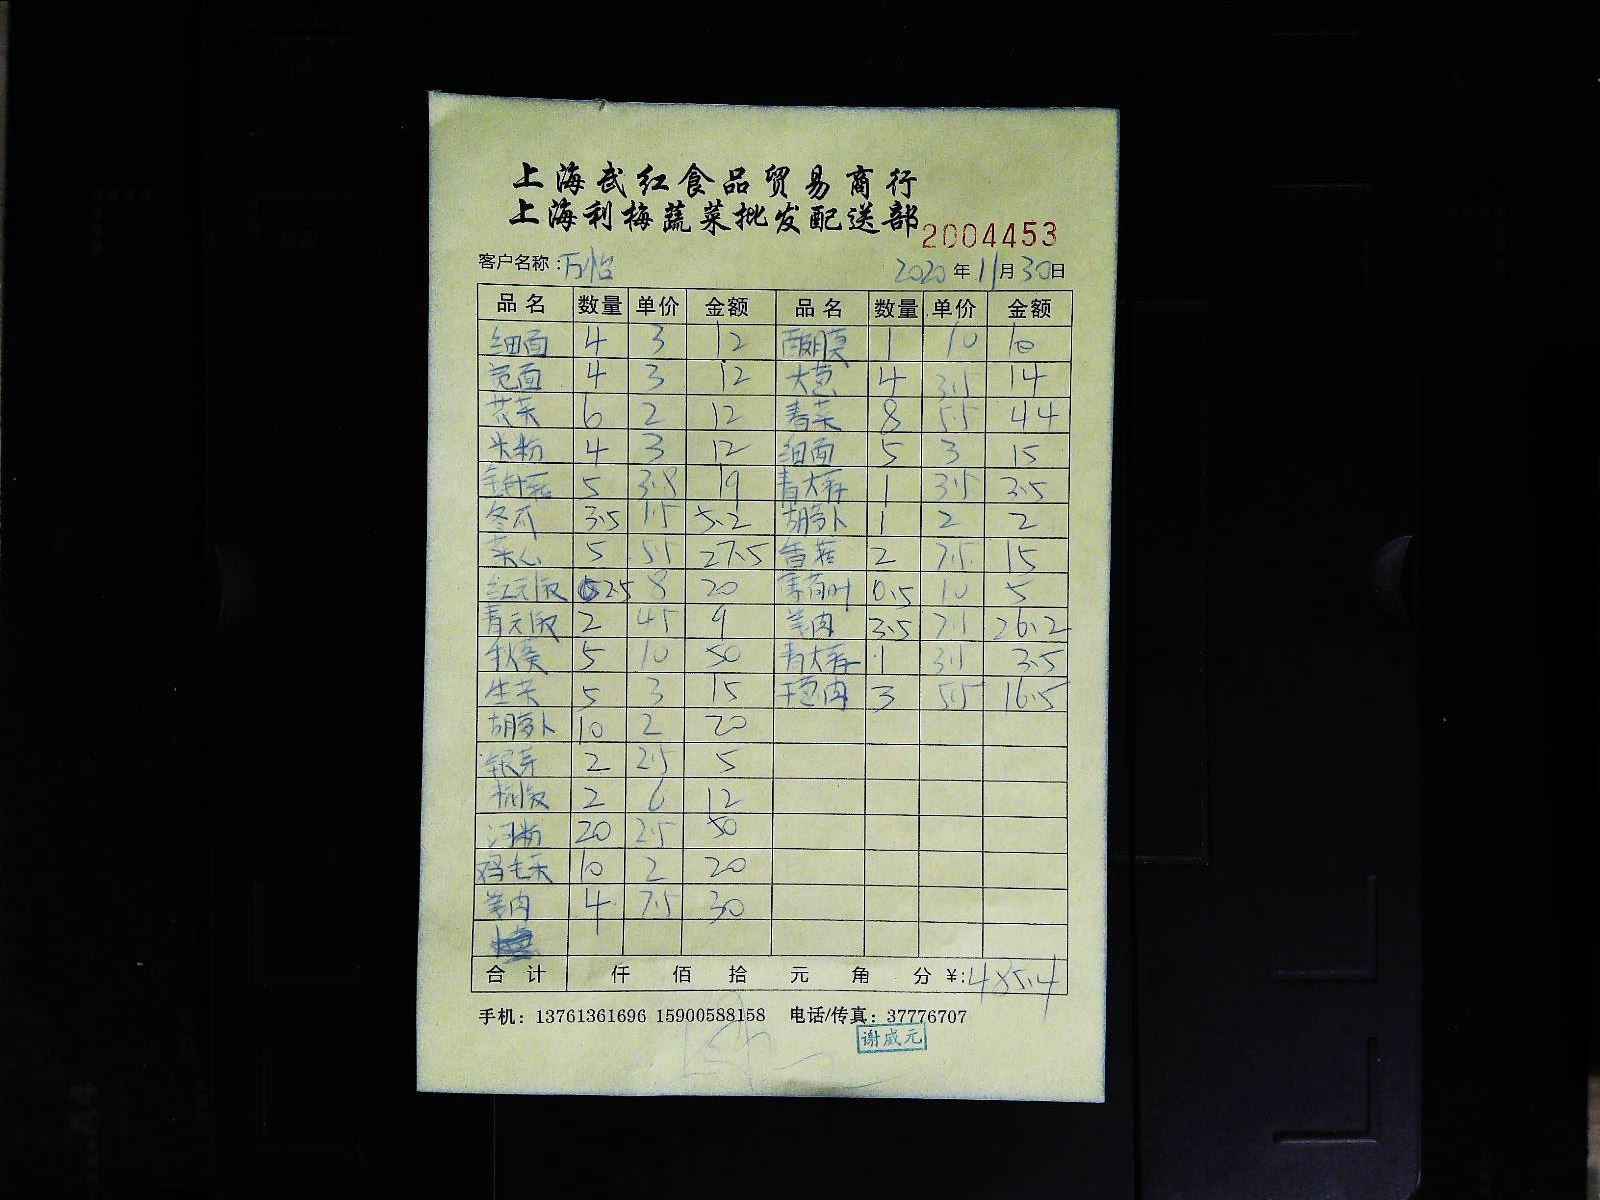 上海武红食品贸易商行
上海利梅蔬菜批发配送部
2004453
客户名称：万怡 2020年11月30日
品名 数量 单价 金额 品名 数量 单价 金额
细面 4 3 12 1 10 10
宽面 4 3 12 大葱 4 3.5 14
花菜 6 2 12 青菜 8 5.5 44
米粉 4 3 12 细面 5 3 15
金针菇 5 3.8 19 青大蒜 1 3.5 3.5
冬瓜 3.5 1.5 5.2 胡萝卜 1 2 2
菜心 5 5.5 27.5 香菇 2 7.5 15
红元椒 2.5 8 20 薄荷叶 0.5 10 5
青元椒 2 4.5 9 羊肉 3.5 7.5 26.2
秋葵 5 10 50 青大蒜 1 3.5 3.5
生菜 5 3 15 干葱肉 3 5.5 16.5
胡萝卜 10 2 20
银芽 2 2.5 5
杭椒 2 6 12
河粉 20 2.5 50
鸡毛菜 10 2 20
羊肉 4 7.5 30
合计 仟 佰 拾 元 角 分 ¥:485.4
手机：13761361696 15900588158 电话/传真：37776707
谢成元